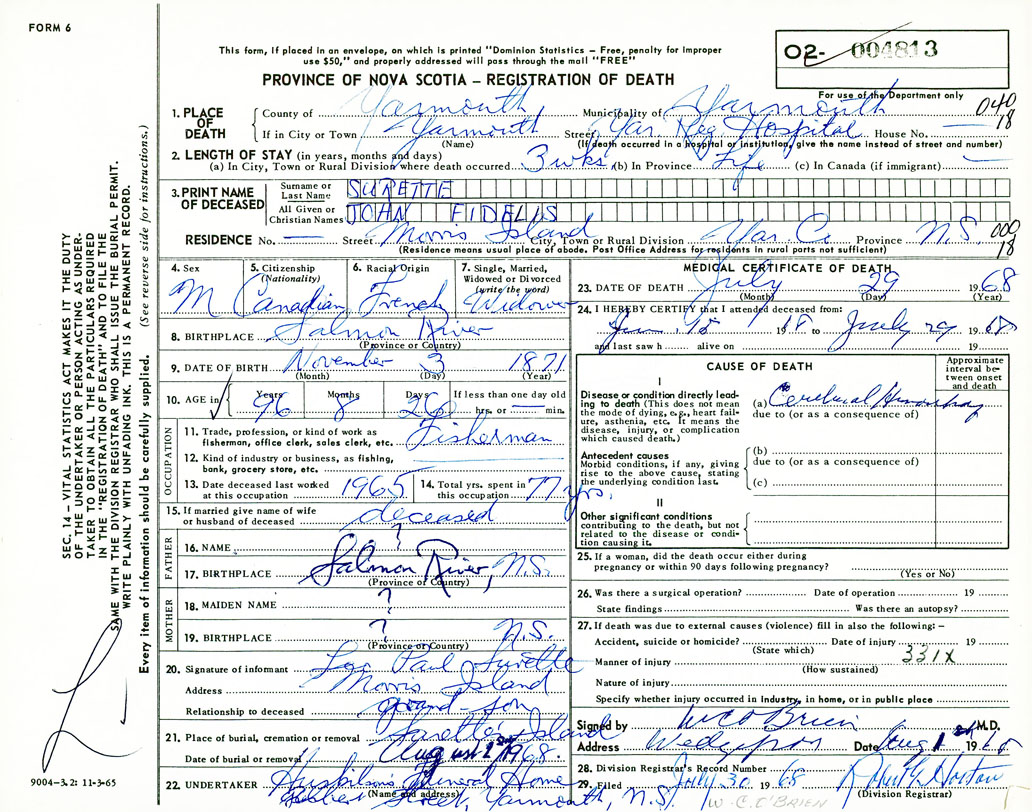 FORM 6
This form, if placed in an envelope, on which is printed "Dominion Statistics – Free, penalty for improper
use $50," and properly addressed will pass through the mail "FREE"
PROVINCE OF NOVA SCOTIA – REGISTRATION OF DEATH
02- 004813
For use of the Department only
040
18
1. PLACE OF DEATH
County of Yarmouth Municipality of Yarmouth
If in City or Town Yarmouth Street Yar. Reg Hospital House No. —
(Name) (If death occurred in a hospital or institution, give the name instead of street and number)
2. LENGTH OF STAY (in years, months and days)
(a) In City, Town or Rural Division where death occurred 3 wks (b) In Province Life (c) In Canada (if immigrant) —
3. PRINT NAME OF DECEASED
Surname or Last Name SURETTE
All Given or Christian Names JOHN FIDELIS
RESIDENCE No. — Street Morris Island City, Town or Rural Division Yar. Co Province N.S.
(Residence means usual place of abode. Post Office Address for residents in rural parts not sufficient)
000
18
4. Sex M
5. Citizenship (Nationality) Canadian
6. Racial Origin French
7. Single, Married, Widowed or Divorced (write the word) Widower
8. BIRTHPLACE Salmon River
(Province or Country)
9. DATE OF BIRTH November 3 1871
(Month) (Day) (Year)
10. AGE in Years 96 Months 8 Days 26 If less than one day old hrs. or — min.
OCCUPATION
11. Trade, profession, or kind of work as fisherman, office clerk, sales clerk, etc. Fisherman
12. Kind of industry or business, as fishing, bank, grocery store, etc.
13. Date deceased last worked at this occupation 1965
14. Total yrs. spent in this occupation 77 yrs.
15. If married give name of wife or husband of deceased deceased
FATHER
16. NAME ?
17. BIRTHPLACE Salmon River, N.S.
(Province or Country)
MOTHER
18. MAIDEN NAME ?
19. BIRTHPLACE ? N.S.
(Province or Country)
20. Signature of informant Paul Surette
Address Morris Island
Relationship to deceased grand-son
21. Place of burial, cremation or removal Surette's Island
Date of burial or removal August 1 1968.
22. UNDERTAKER Funeral Home
(Name and address) Street, Yarmouth, N.S.
MEDICAL CERTIFICATE OF DEATH
23. DATE OF DEATH July 29 1968
(Month) (Day) (Year)
24. I HEREBY CERTIFY that I attended deceased from:
15 to July 29 1968
and last saw h alive on 19
CAUSE OF DEATH
Approximate interval between onset and death
I
Disease or condition directly leading to death (This does not mean the mode of dying, e.g., heart failure, asthenia, etc. It means the disease, injury, or complication which caused death.)
(a) Cerebral Hemorrhage
due to (or as a consequence of)
Antecedent causes
Morbid conditions, if any, giving rise to the above cause, stating the underlying condition last.
(b)
due to (or as a consequence of)
(c)
II
Other significant conditions
contributing to the death, but not related to the disease or condition causing it.
25. If a woman, did the death occur either during pregnancy or within 90 days following pregnancy?
(Yes or No)
26. Was there a surgical operation? Date of operation 19
State findings Was there an autopsy?
27. If death was due to external causes (violence) fill in also the following: –
Accident, suicide or homicide? Date of injury 19
(State which)
331X
Manner of injury
(How sustained)
Nature of injury
Specify whether injury occurred in industry, in home, or in public place
Signed by W C O'Brien M.D.
Address Wedgeport Date Aug 1 1968
28. Division Registrar's Record Number
29. Filed July 30 1968 Robert Horton
(Division Registrar)
W. C. O'BRIEN
SEC. 14 – VITAL STATISTICS ACT MAKES IT THE DUTY
OF THE UNDERTAKER OR PERSON ACTING AS UNDER-
TAKER TO OBTAIN ALL THE PARTICULARS REQUIRED
IN THE "REGISTRATION OF DEATH" AND TO FILE THE
SAME WITH THE DIVISION REGISTRAR WHO SHALL ISSUE THE BURIAL PERMIT.
WRITE PLAINLY WITH UNFADING INK. THIS IS A PERMANENT RECORD.
Every item of information should be carefully supplied. (See reverse side for instructions.)
9004-3.2: 11-3-65